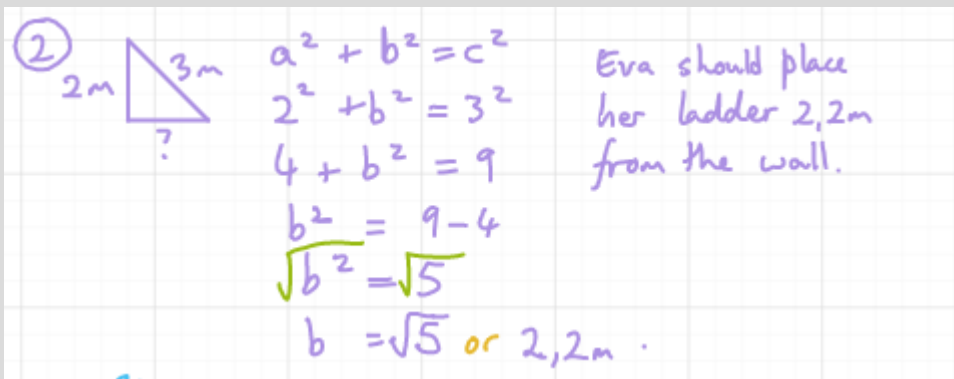 2
2m
3m
?
a² + b² = c²
2² + b² = 3²
4 + b² = 9
b² = 9 - 4
√b² = √5
b = √5 or 2,2m.
Eva should place
her ladder 2,2m
from the wall.